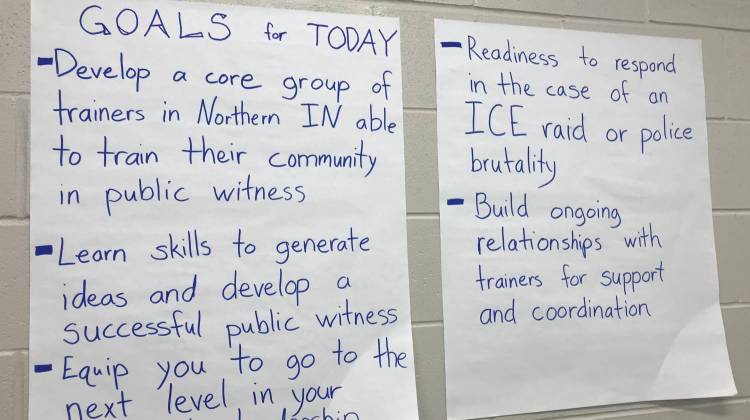 GOALS for TODAY
-Develop a core group of
trainers in Northern IN able
to train their community
in public witness
-Learn skills to generate
ideas and develop a
successful public witness
-Equip you to go to the
next level in your
-Readiness to respond
in the case of an
ICE raid or police
brutality
-Build ongoing
relationships with
trainers for support
and coordination